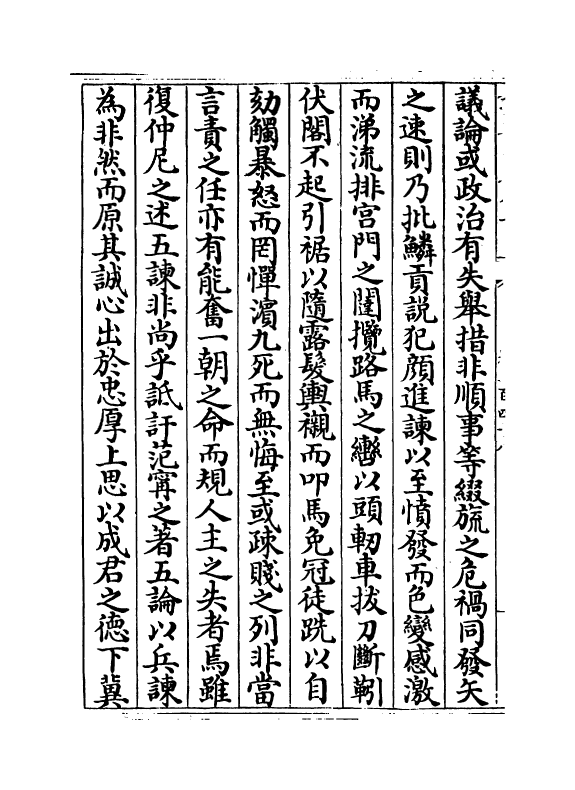 議論或政治有失舉措非順事等綴旒之危禍同發矢
之速則乃批鱗貢説犯顔進諫以至憤發而色變感激
而涕流排宫門之闥攬路馬之轡以頭軔車拔刀斷靷
伏閣不起引裾以隨露髮輿櫬而叩馬免冠徒跣以自
劾觸暴怒而罔憚濵九死而無悔至或疎賤之列非當
言責之任亦有能奮一朝之命而規人主之失者焉雖
復仲尼之述五諫非尚乎詆訐范寗之著五論以兵諫
為非然而原其誠心出於忠厚上思以成君之德下冀